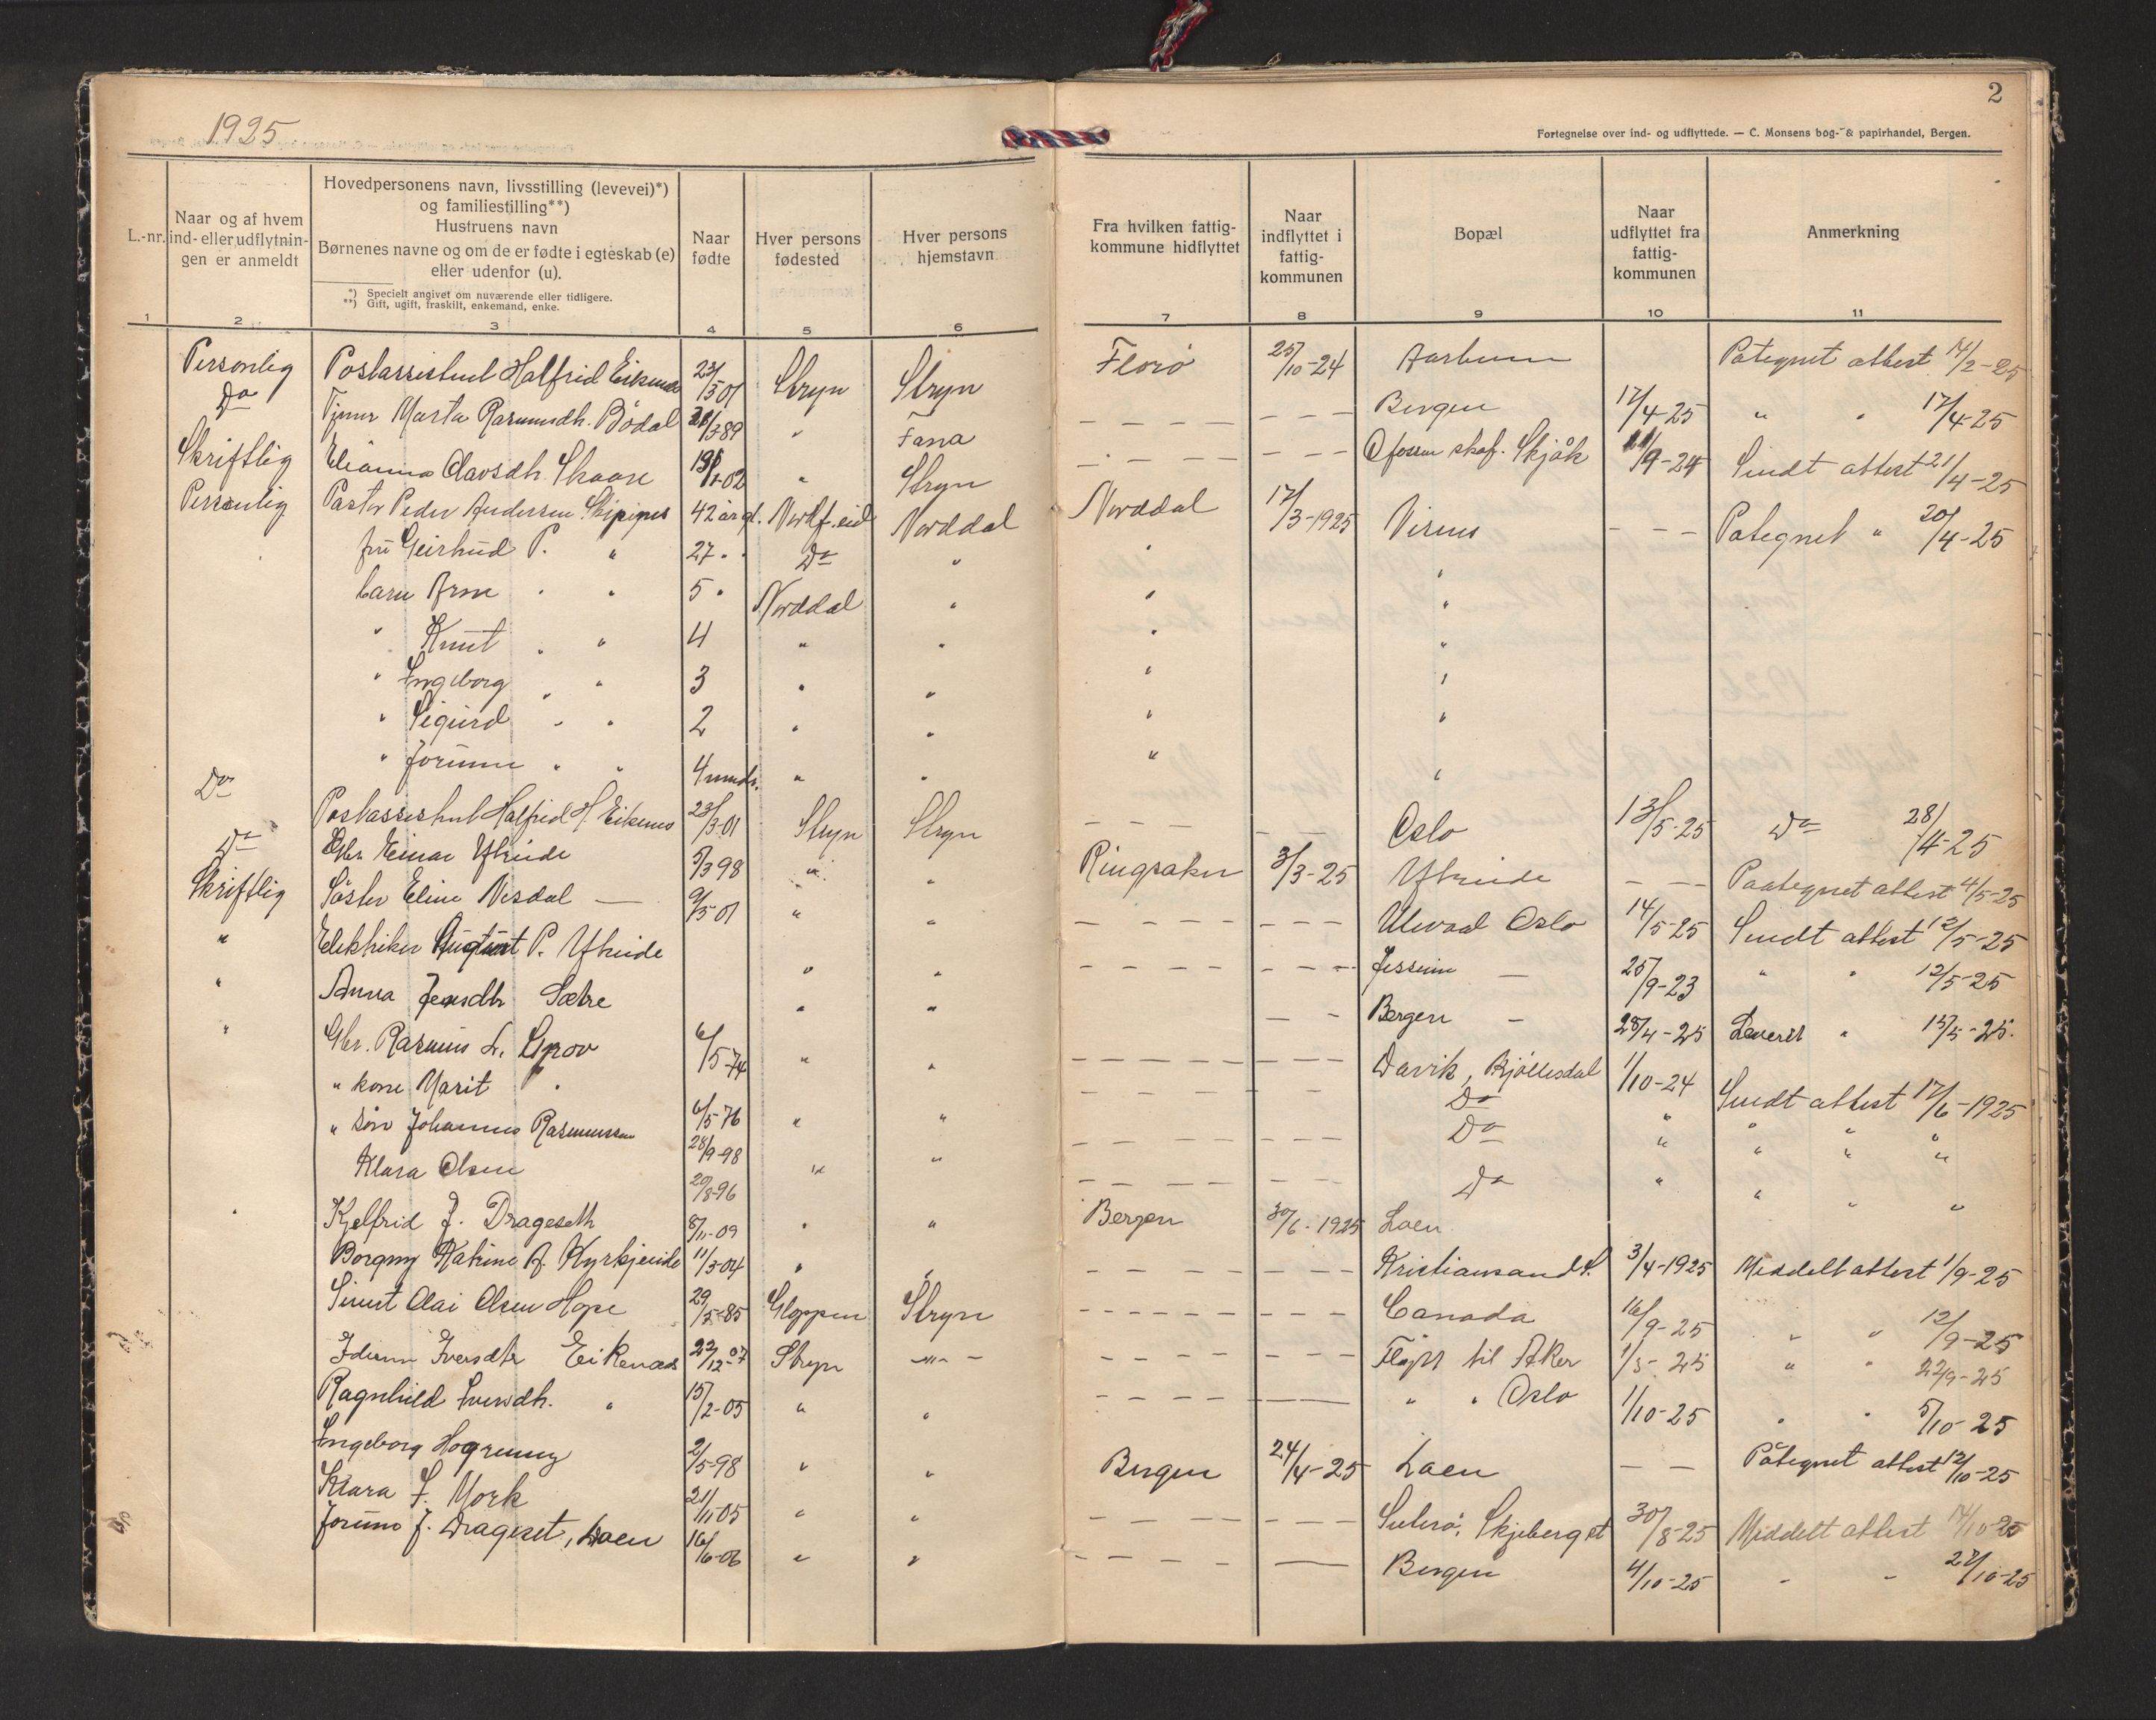 1925
2
Fortegnelse over ind- og udflyttede. — C. Monsens bog- & papirhandel, Bergen.
L.-nr.
Naar og af hvem ind- eller udflytnin-gen er anmeldt
Hovedpersonens navn, livsstilling (levevei)*) og familiestilling**) Hustruens navn Børnenes navne og om de er fødte i egteskab (e) eller udenfor (u).
*) Specielt angivet om nuværende eller tidligere.
**) Gift, ugift, fraskilt, enkemand, enke.
Naar fødte
Hver persons fødested
Hver persons hjemstavn
Fra hvilken fattig-kommune hidflyttet
Naar indflyttet i fattig-kommunen
Bopæl
Naar udflyttet fra fattig-kommunen
Anmerkning
1 2 3 4 5 6 7 8 9 10 11
Personlig Postassistent Halfrid Eikenæs 23/3 01 Stryn Stryn Florö 25/10-24 Pategnet attest 14/2-25
Do Marta Rasmusdh. Bödal /3 89 " Fana — — — — Bergen 17/4-25 " " 17/4-25
Skriftlig Olavsdh. Skaare -02 " Stryn — — — — Skjåk /9-24 Sendt attest 21/4-25
Personlig Pastor Peder Andersen 42 år gl. Nordf.eid Norddal Norddal 17/3-1925 Visnes — — — Pategnet " 20/4-25
fru Geirhud P. " 27 " " Do " " "
barn Arne " " 5 " Norddal " " "
" Knut " " 4 " " " "
" Ingeborg " " 3 " " " "
" Sigurd " " 2 " " " "
" Jorunn " " 4 mndr. " " " "
Do Postassistent Halfrid H. Eikenes 23/3-01 Stryn Stryn — — — — — Oslo 13/5-25 Do 28/4-25
Do Gbr. Einar Ytreide 5/3 98 " " Ringsaker 3/3-25 Ytreide — — — Paategnet attest 4/5-25
Skriftlig Söster Eline Nesdal — 9/5-01 " " — — — — — — — Ulevaal Oslo 14/5-25 Sendt attest 12/5-25
" Elektriker August P. Ytreide " " — — — — — — — Jessum — 25/9-23 " " 12/5-25
" Anna Jensdtr Sætre " " — — Bergen — 28/4-25 Leverst " 15/5-25.
" Gbr. Rasmus L. Grov 6/5-74 " " — — — — — — — — Davik, Bjöllesdal 1/10-24 Sendt attest 17/6-1925
" kone Marit " 6/5-76 " " — — — — — Do " " " "
" sön Johannes Rasmussen 28/9-98 " " — — — — — — — — Do " " " "
Klara Olsen 20/8-96 — — — — — — — Do " " " "
" Kjelfrid J. Drageseth 8/11-09 " " Bergen 30/6-1925 Loen
Borgny Katrine A. Kyrkjeeide 11/3-04 " " — — — — — — — — Kristiansand S. 3/4-1925 Meddelt attest 1/9-25
Sivert Olai Olsen Hope 29/5-85 Gloppen Stryn — — — — — — — — — Canada 16/9-25 " " 12/9-25
Iversdtr Eikenæs 22/12-07 Stryn — " — — — — — — — — — Fløtt til Aker 1/5-25 " " 22/9-25
Ragnhild Iversdh. " 15/2-05 " " — — — — — — " " Oslo 1/10-25 " " 5/10-25
Ingeborg Hogrenning 2/5-98 " " Bergen 24/4-25 Loen — — Påtegnet attest 12/10-25
Klara F. Mork 21/11 05 " " — — — — — — — — Skjeberg st 30/8-25 Meddelt attest 14/10-25
Jorunn J. Drageset, Loen 16/6-06 " " — — — — — — Bergen 4/10-25 " " 27/10-25